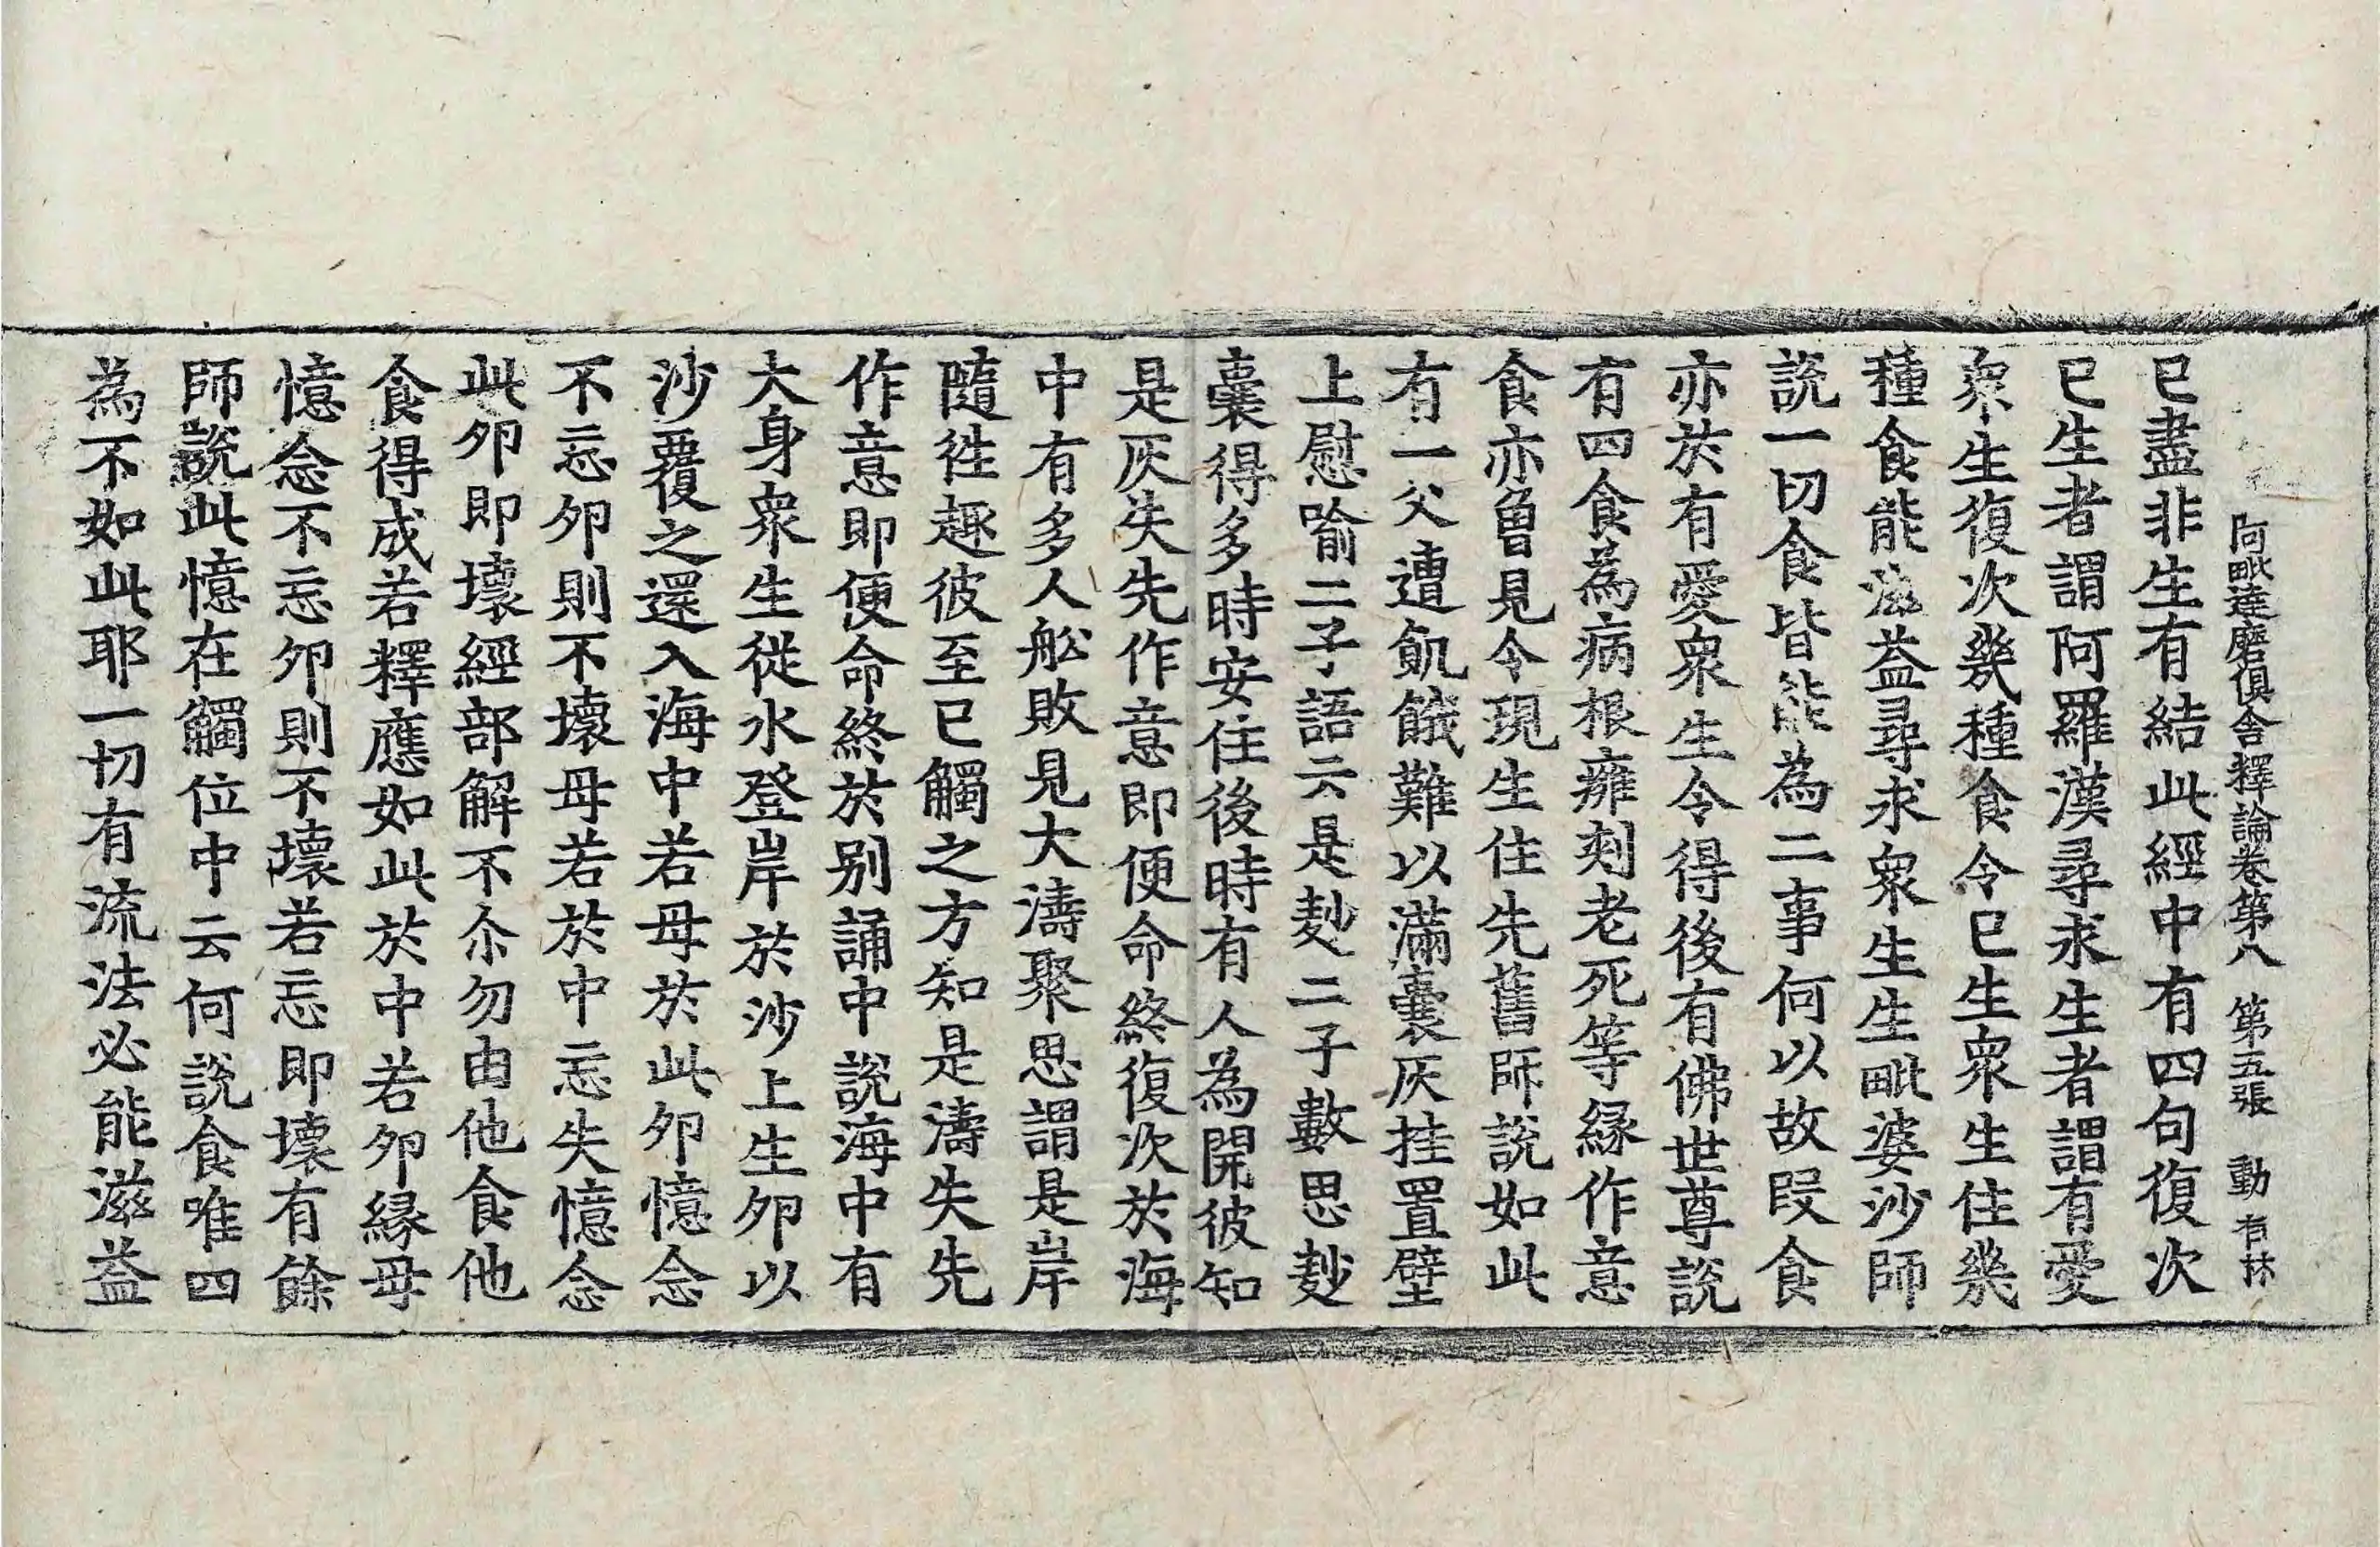 阿毗達磨俱舍釋論卷第八　第五張　動　有休
已盡非生有結此經中有四句復次
已生者謂阿羅漢尋求生者謂有愛
衆生復次幾種食令已生衆生住幾
種食能滋益尋求衆生生毗婆沙師
説一切食皆能為二事何以故段食
亦於有愛衆生令得後有佛世尊説
有四食為病根癰刾老死等縁作意
食亦曾見令現生住先舊師説如此
有一父遭飢餓難以滿囊灰挂置壁
上慰喻二子語云是麨二子數思麨
囊得多時安住後時有人為開彼知
是灰失先作意即便命終復次於海
中有多人舩敗見大濤聚思謂是岸
隨徃趣彼至已觸之方知是濤失先
作意即便命終於別誦中説海中有
大身衆生從水登岸於沙上生夘以
沙覆之還入海中若母於此夘憶念
不忘夘則不壞母若於中忘失憶念
此夘即壞經部解不尒勿由他食他
食得成若釋應如此於中若夘縁母
憶念不忘夘則不壞若忘即壞有餘
師説此憶在觸位中云何説食唯四
為不如此耶一切有流法必能滋益